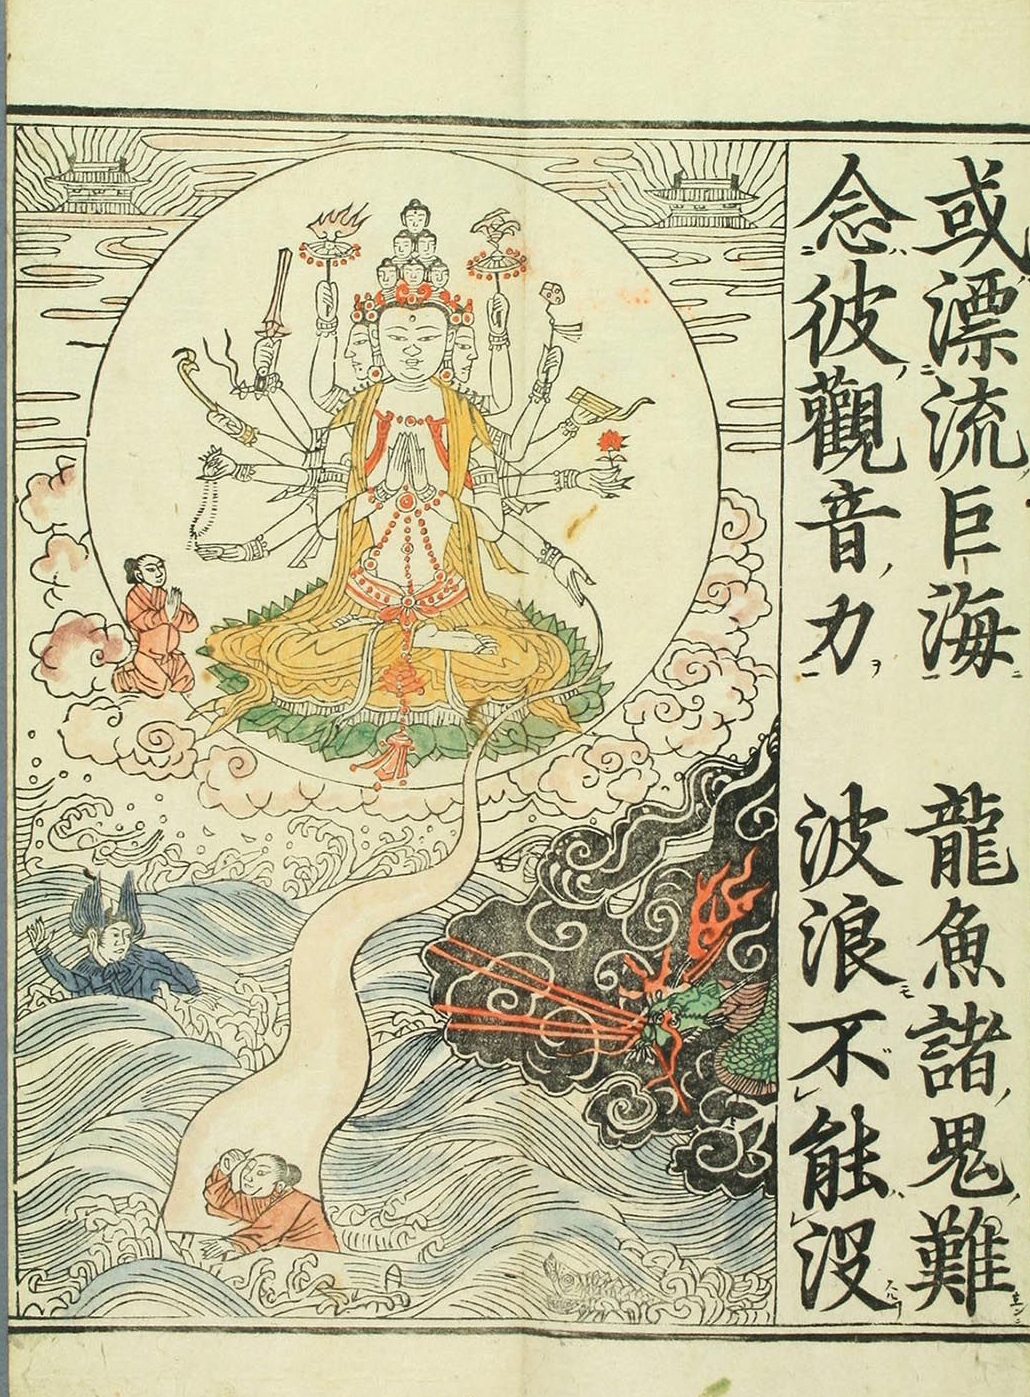 或漂流巨海　龍魚諸鬼難
念彼觀音力　波浪不能没